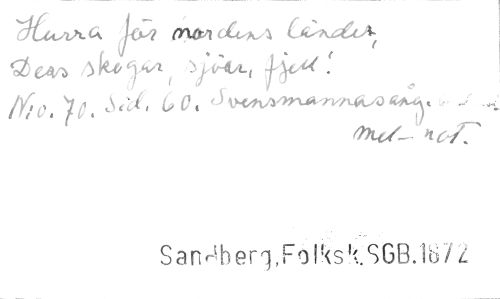 Hurra för nordens länder,
Dess skogar, sjöar, fjell!
N:o. 70. Sid. 60. Svensmannasång.
mel-not.
Sandberg, Folksk. SGB. 1872